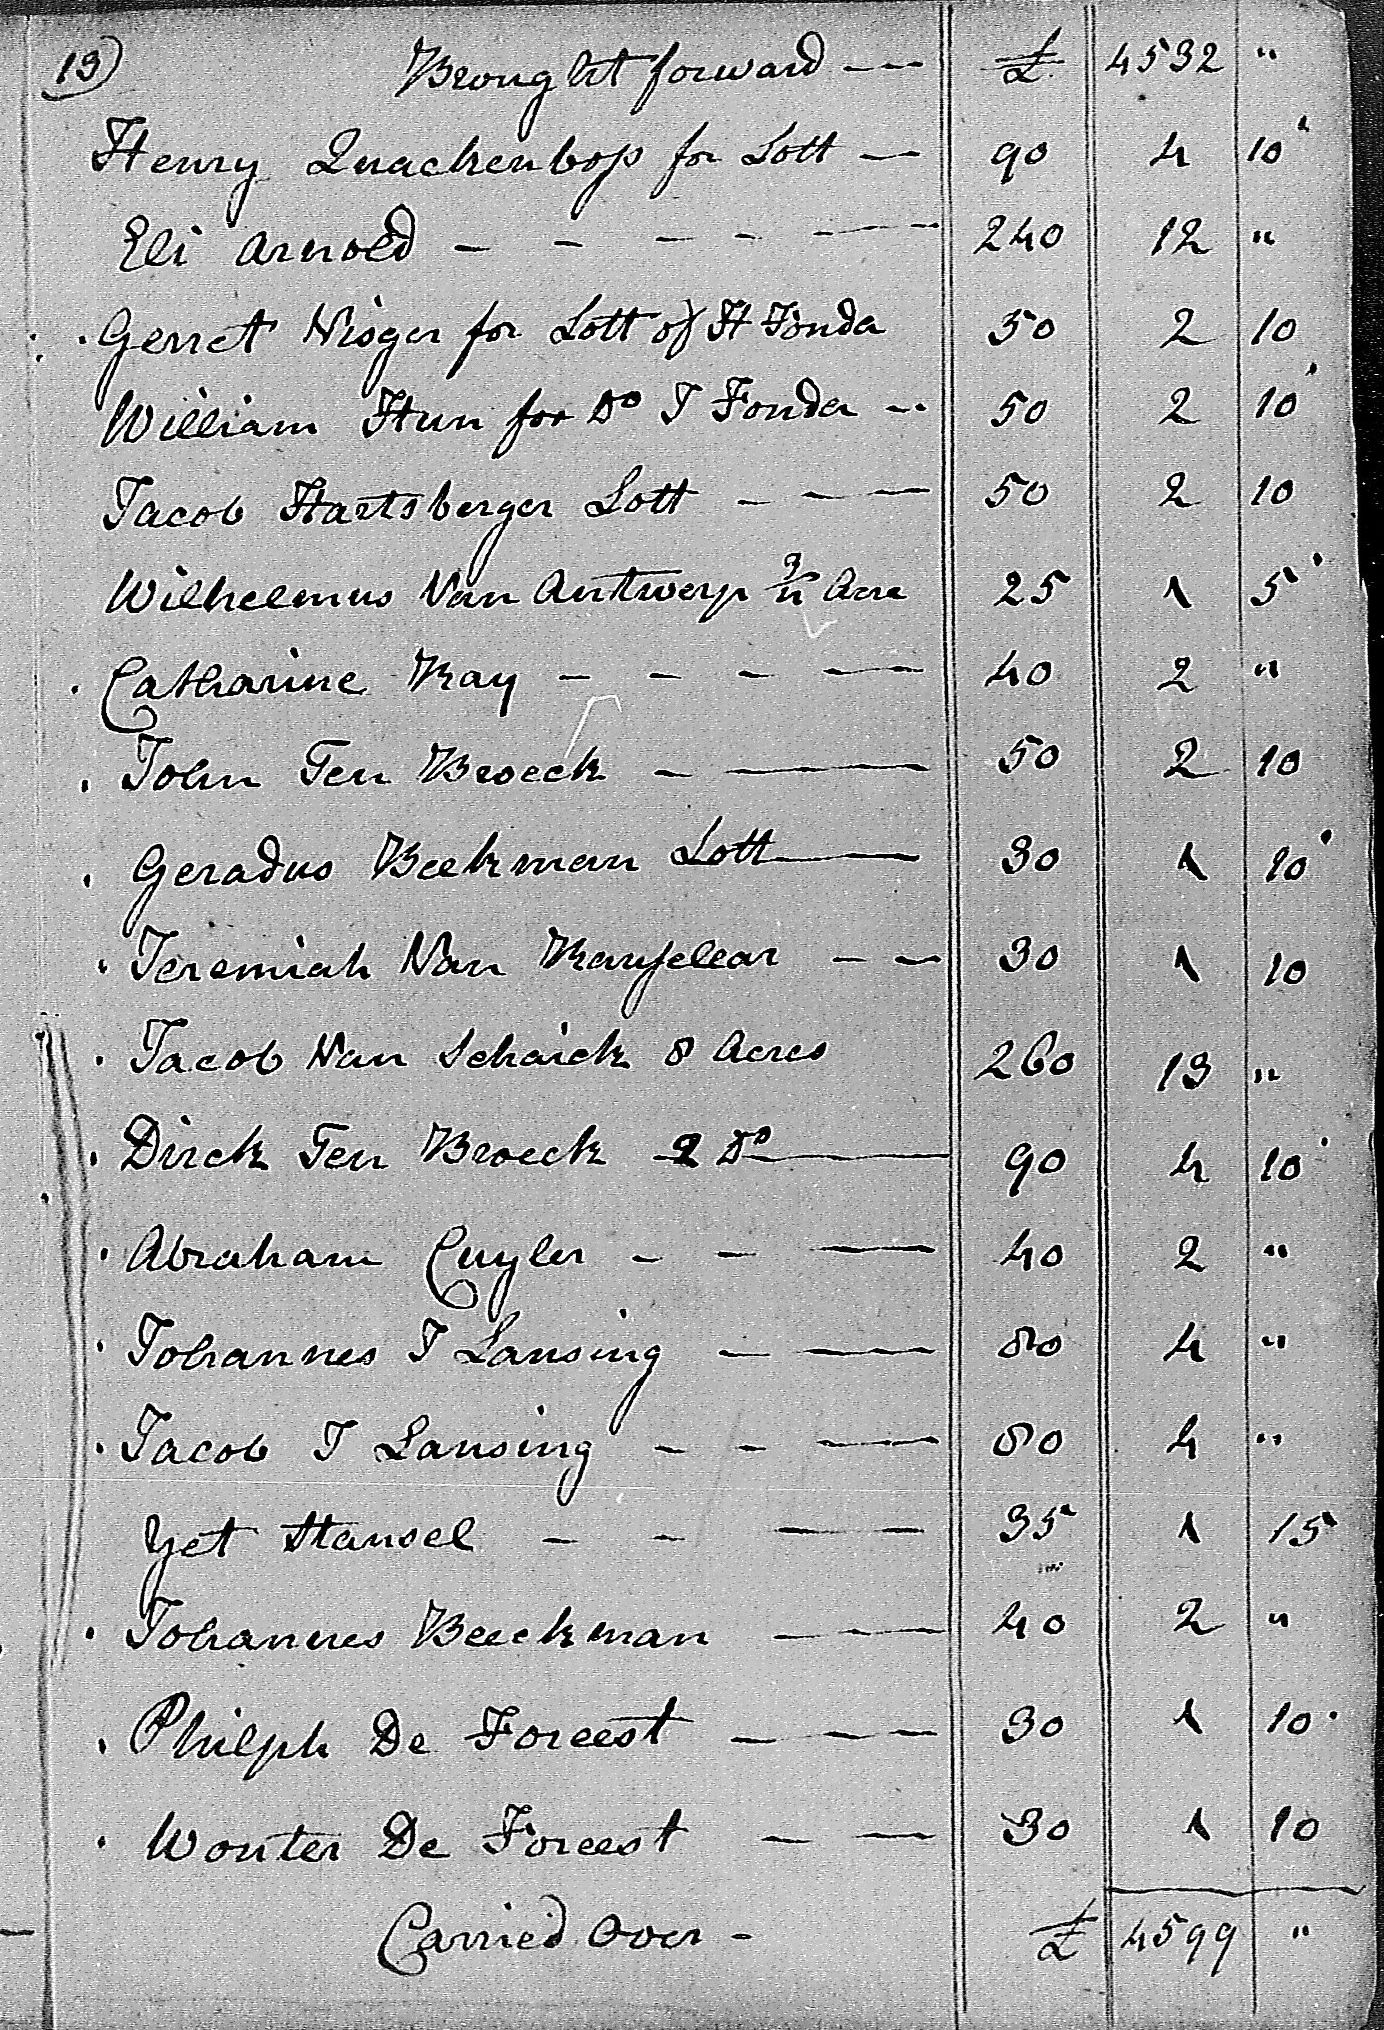 13) Brought forward — £ 4532 "
Henry Quackenboss for Lott — 90 4 10
Eli Arnold - - - - - 240 12 "
Gerret Visger for Lott of H Fonda 50 2 10
William Hun for Do J Fonda - 50 2 10
Jacob Hartsberger Lott - - - 50 2 10
Wilhelmus Van Antwerp Acre 25 1 5
Catharine Ray - - - — 40 2 "
John Ten Broeck - — 50 2 10
Geradus Beekman Lott — 30 1 10
Jeremiah Van Ranselear - - 30 1 10
Jacob Van Schaick 8 Acres 260 13 "
Dirck Ten Broeck 2 Do — 90 4 10
Abraham Cuyler - - — 40 2 "
Johannes J Lansing - — 80 4 "
Jacob J Lansing - - — 80 4 "
Yet Stansel - - — 35 1 15
Johannes Beeckman — 40 2 "
Philph De Foreest - - — 30 1 10
Wouter De Foreest - — 30 1 10
Carried Over - £ 4599 "